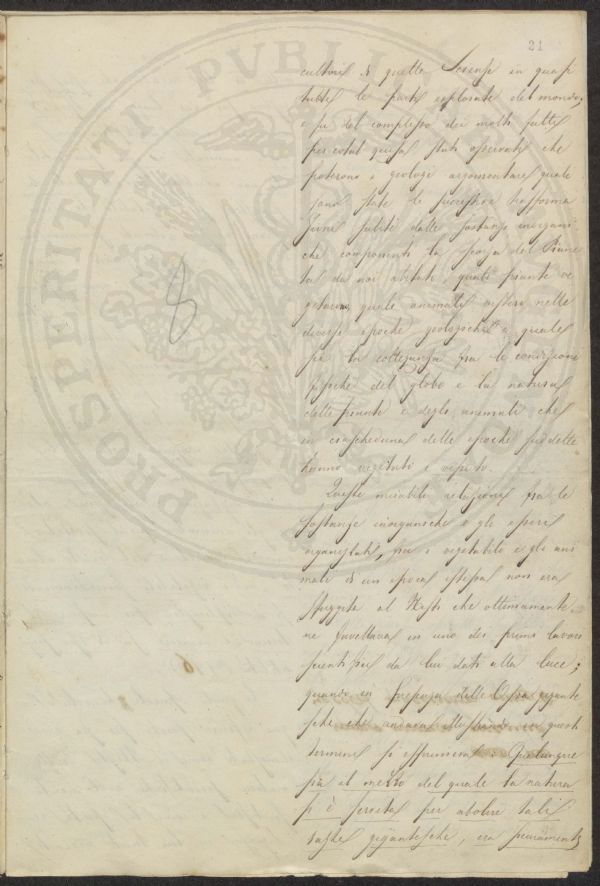 21
PROSPERITATI PVBLI
8
cultori di quella Scienza in quasi
tutte le parti esplorate del mondo,
e fu dal complesso dei molti fatti
per cotal guisa stati osservati che
poterono i geologi argomentare quale
sono state le successive trasforma
zioni subite dalle sostanze inorgani
che componenti la scorza del Piane
ta da noi abitato, quali piante ve
getarono, quali animali vissero nelle
diverse epoche geologiche, e quale
sia la colleganza fra le condizioni
fisiche del globo e la natura
delle piante e degli animali che
in ciascheduna delle epoche suddette
hanno vegetato e vissuto.
Queste mirabili relazioni fra le
sostanze inorganiche e gli esseri
organizzati, fra i vegetabili e gli ani
mali di un epoca istessa non era
sfuggite al Nesti che ottimamente
ne favellava in uno dei primi lavori
scientifici da lui dati alla luce;
quando in presenza delle Ossa gigante
sche che andava illustrando in questi
termini si esprimeva: Qualunque
sia il mezzo del quale la natura
si è servita per abolire tali
razze gigantesche, era sicuramente